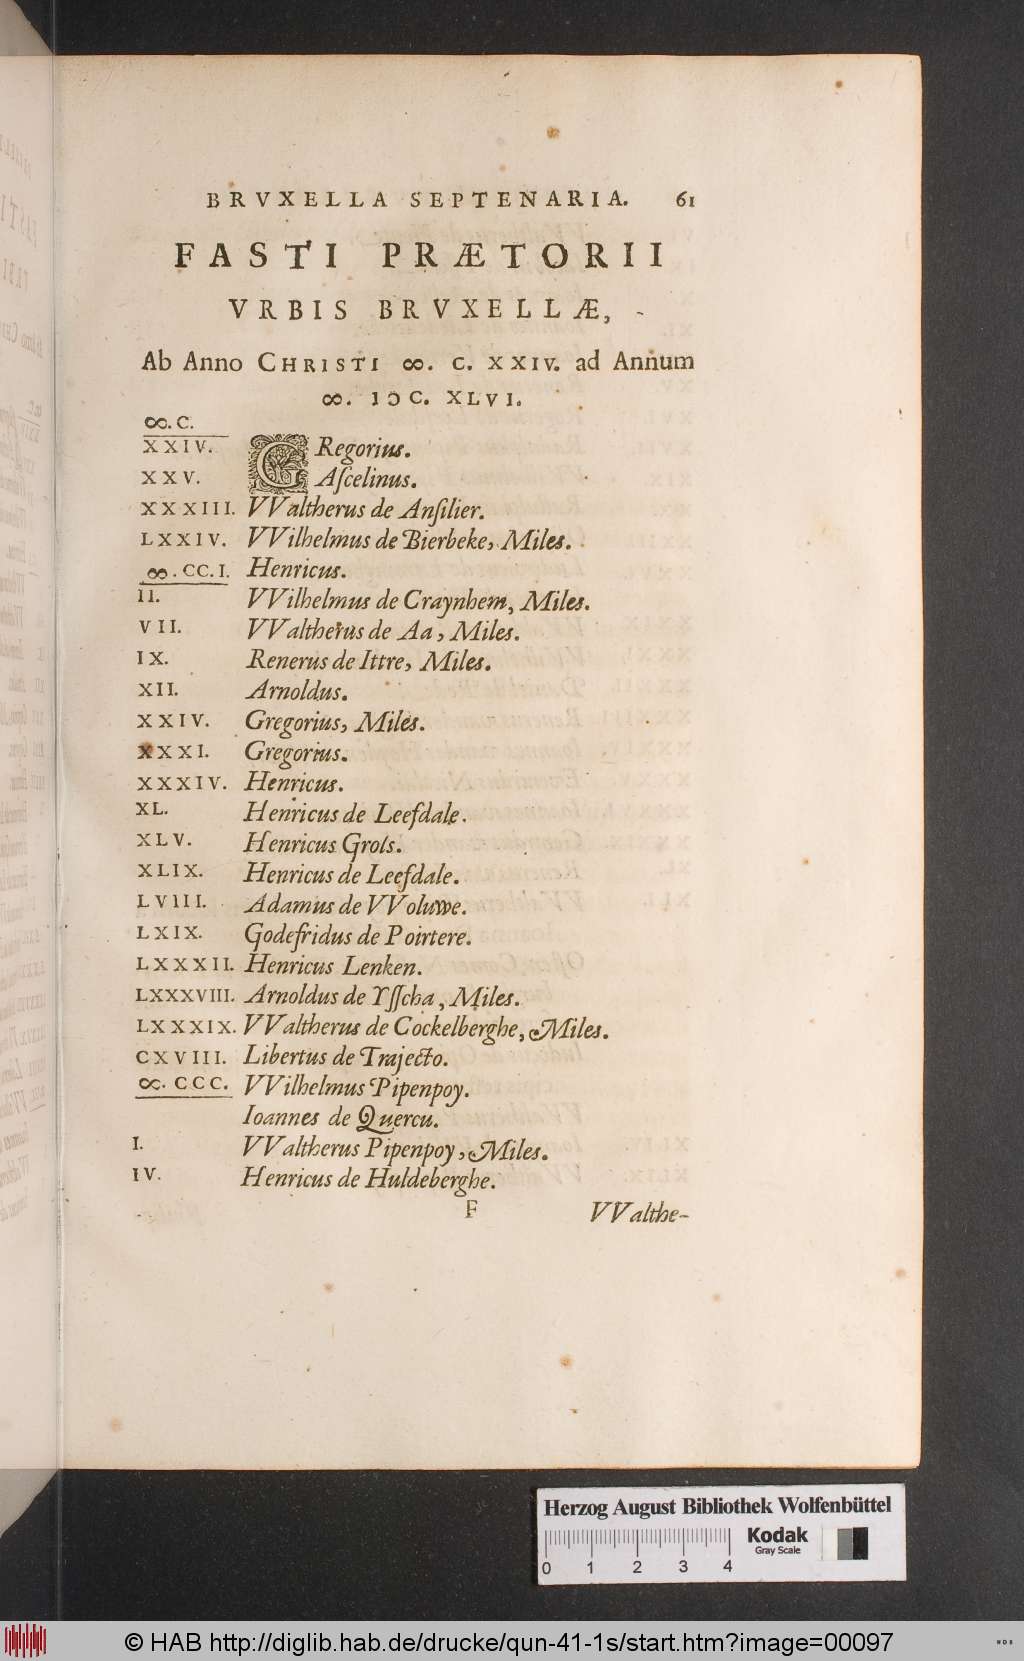 BRVXELLA SEPTENARIA. 61
FASTI PRÆTORII
VRBIS BRVXELLÆ,
Ab Anno CHRISTI ꝏ. C. XXIV. ad Annum
ꝏ. IↃC. XLVI.
ꝏ.C.
XXIV. GRegorius.
XXV. Aſcelinus.
XXXIII. VValtherus de Anſilier.
LXXIV. VVilhelmus de Bierbeke, Miles.
ꝏ.CC.I. Henricus.
II. VVilhelmus de Craynhem, Miles.
VII. VValtherus de Aa, Miles.
IX. Renerus de Ittre, Miles.
XII. Arnoldus.
XXIV. Gregorius, Miles.
XXXI. Gregorius.
XXXIV. Henricus.
XL. Henricus de Leefdale.
XLV. Henricus Grols.
XLIX. Henricus de Leefdale.
LVIII. Adamus de VVoluwe.
LXIX. Godefridus de Poirtere.
LXXXII. Henricus Lenken.
LXXXVIII. Arnoldus de Yſſcha, Miles.
LXXXIX. VValtherus de Cockelberghe, Miles.
CXVIII. Libertus de Trajecto.
ꝏ.CCC. VVilhelmus Pipenpoy.
Ioannes de Quercu.
I. VValtherus Pipenpoy, Miles.
IV. Henricus de Huldeberghe.
F VValthe-
Herzog August Bibliothek Wolfenbüttel
Kodak
Gray Scale
0 1 2 3 4
© HAB http://diglib.hab.de/drucke/qun-41-1s/start.htm?image=00097